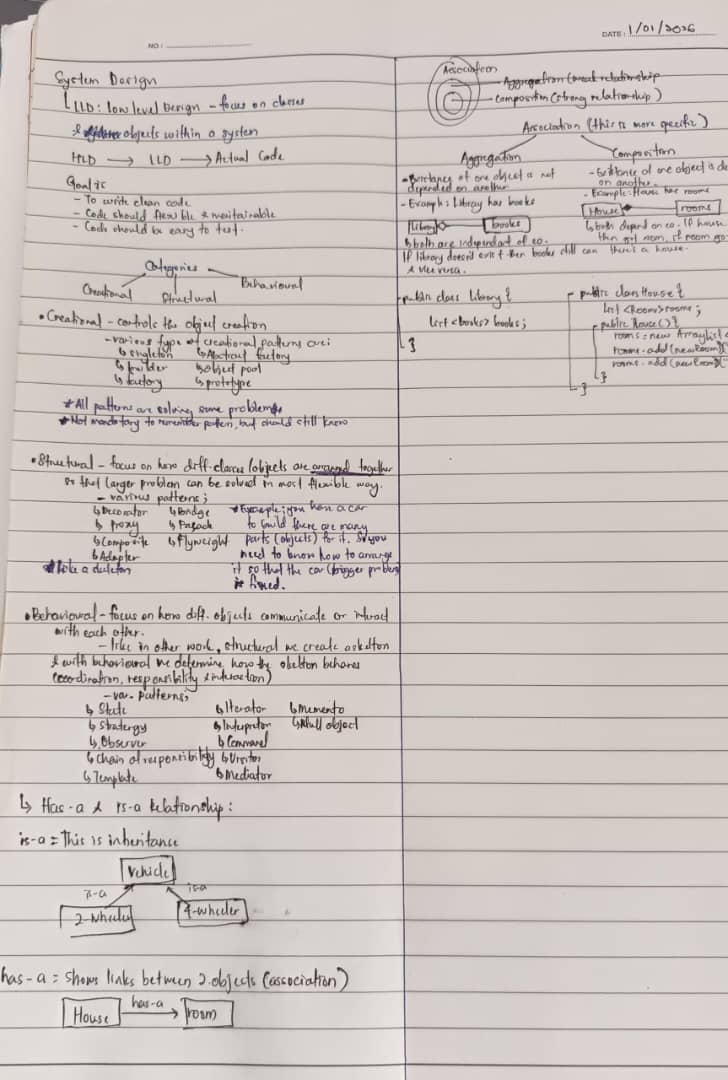 NO :
DATE : 1/01/2026
System Design
LLD: low level Design - focus on classes
& objects within a system
HLD → LLD → Actual Code
Goal is
- To write clean code
- Code should flexible & maintainable
- Code should be easy to test.
Categories
Creational
Structural
Behavioural
• Creational - controls the object creation
- various type of creational patterns are:
↳ singleton ↳ Abstract factory
↳ builder ↳ object pool
↳ factory ↳ prototype
* All patterns are solving some problems
* Not mandatory to remember pattern, but should still know
• Structural - focus on how diff. classes/objects are arranged together
so that larger problem can be solved in most flexible way.
- various patterns;
↳ Decorator ↳ Bridge
↳ Proxy ↳ Facade
↳ Composite ↳ Flyweight
↳ Adapter
* Like a skeleton
* Example; you have a car
to build there are many
parts (objects) for it. So you
need to know how to arrange
it so that the car (bigger problem)
is fixed.
• Behavioural - focus on how diff. objects communicate or interact
with each other.
- like in other work, structural we create a skelton
& with behavioural we determine how the skelton behaves
(coordination, responsibility & interaction)
- var. patterns;
↳ State ↳ Iterator ↳ Memento
↳ Stratergy ↳ Interpretor ↳ Null object
↳ Observer ↳ Command
↳ Chain of responsibility ↳ Visitor
↳ Template ↳ Mediator
↳ Has-a & Is-a Relationship:
is-a = This is inheritance
Vehicle
is-a is-a
2-wheeler 4-wheeler
has-a = Shows links between 2 objects (association)
House has-a → room
Association
Aggregation (weak relationship
Composition (strong relationship)
Association (this is more specific)
Aggregation
- Existance of one object is not
depended on another
- Example: Library has books
library books
↳ both are independant of eo.
If library doesn't exist then books still can
& vice versa.
- public class Library {
list <books> books;
}
Composition
- Existance of one object is de
on another.
- Example: House has rooms
House rooms
↳ both depend on eo. If house
then not room, if room go
there's a house.
public class House {
list <Room> rooms;
public House() {
rooms = new ArrayList
rooms.add(new Room("
rooms.add(new Room("
}
}